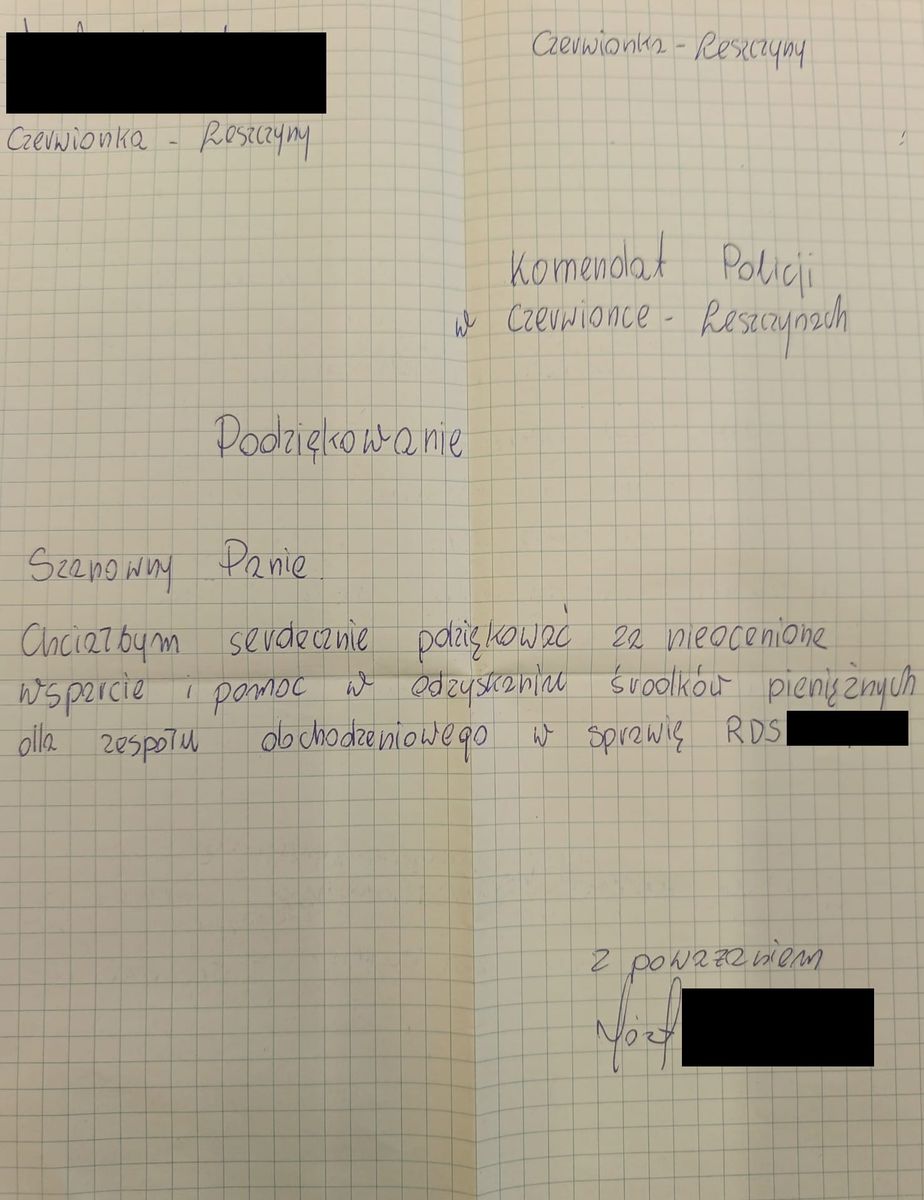 Czerwionka - Leszczyny
Czerwionka - Leszczyny
Komendat Policji
w Czerwionce - Leszczynach
Podziękowanie
Szanowny Panie.
Chciałbym serdecznie pdziękować za nieocenione
wsparcie i pomoc w odzyskaniu środków pieniężnych
dla zespołu dochodzeniowego w sprawię RDS
Z poważaniem
Józef